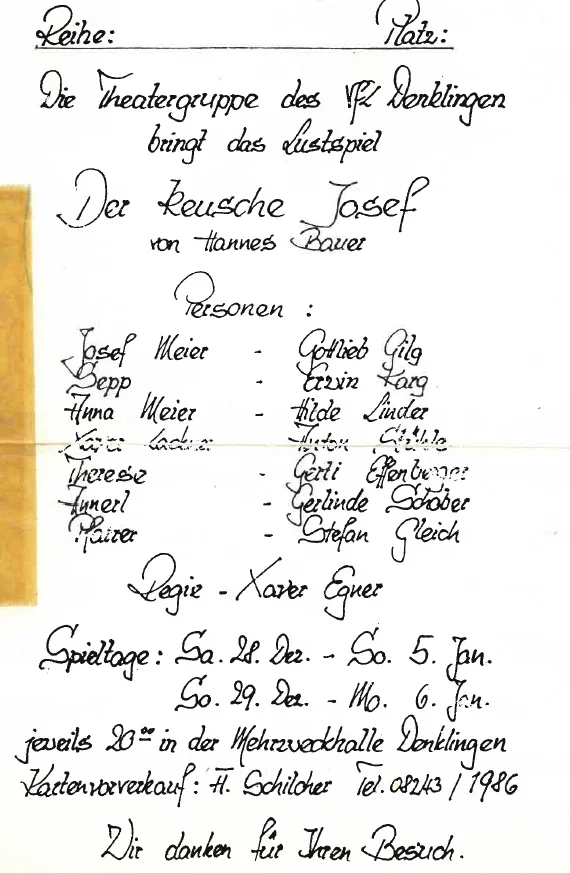 Reihe: Platz:
Die Theatergruppe des VfL Denklingen
bringt das Lustspiel
Der keusche Josef
von Hannes Bauer
Personen :
Josef Meier - Gottlieb Gilg
Sepp - Erwin Karg
Anna Meier - Hilde Linder
Xaver Anton
Therese - Gerti Effenberger
Annerl - Gerlinde Schober
Pfarrer - Stefan Gleich
Regie - Xaver Egner
Spieltage: Sa. 28. Dez. - So. 5. Jan.
So. 29. Dez. - Mo. 6. Jan.
jeweils 20⁰⁰ in der Mehrzweckhalle Denklingen
Kartenvorverkauf: H. Schilcher Tel. 08243 / 1986
Wir danken für Ihren Besuch.